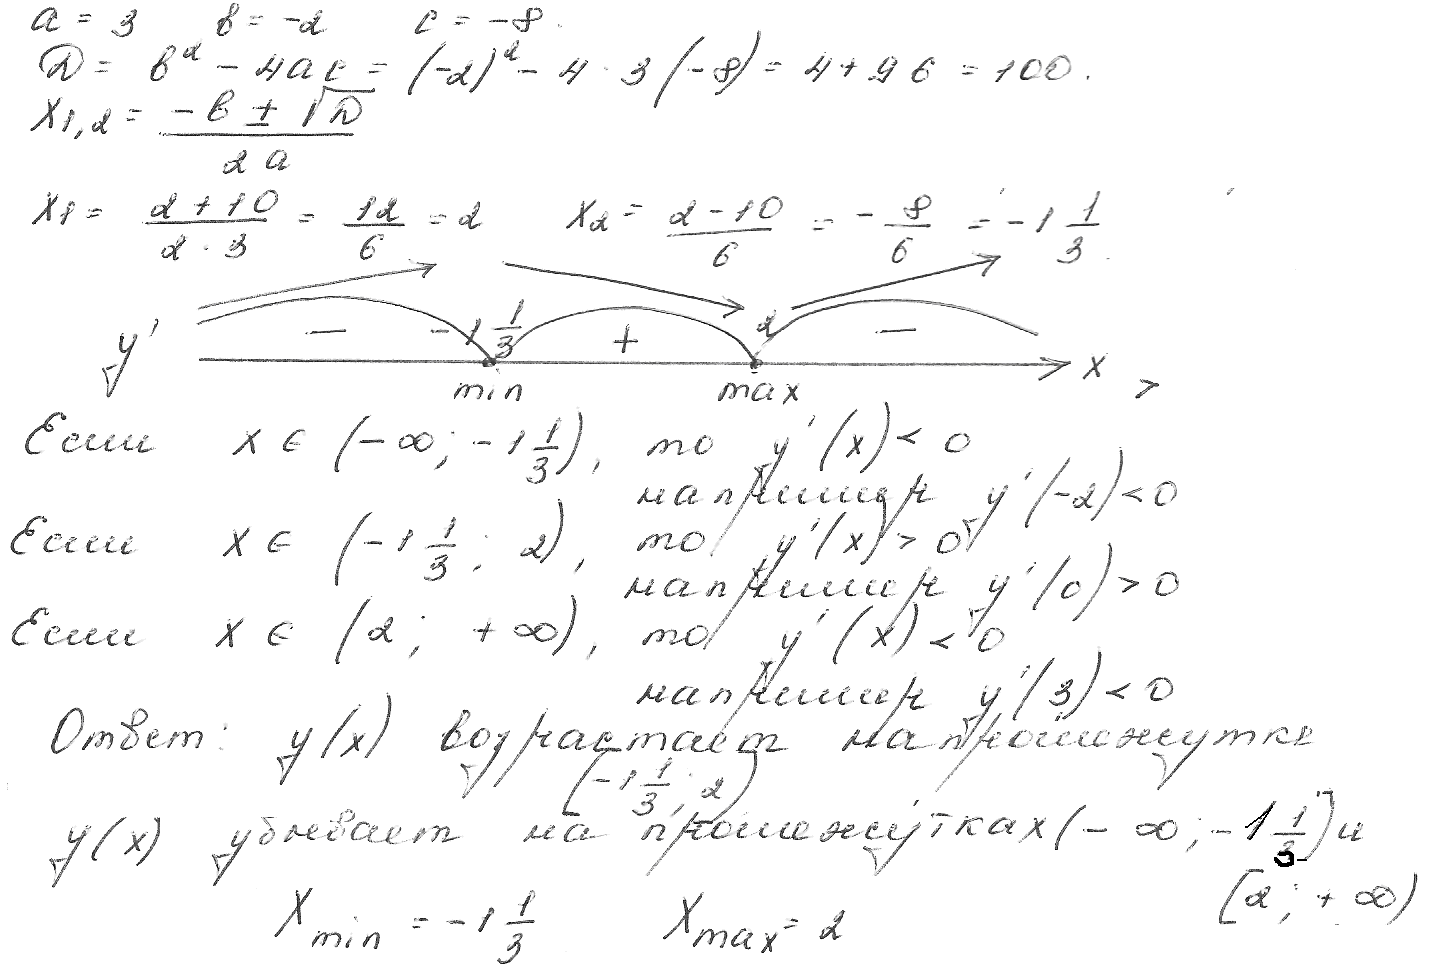 a = 3 b = -2 c = -8.
D = b² - 4ac = (-2)² - 4 · 3 (-8) = 4 + 96 = 100.
x1,2 = (-b ± √D) / 2a
x1 = (2 + 10) / (2 · 3) = 12/6 = 2 x2 = (2 - 10) / 6 = - 8/6 = -1 1/3
y' − -1 1/3 + 2 − x
min max
Если x ∈ (-∞; -1 1/3), то y'(x) < 0
например y'(-2) < 0
Если x ∈ (-1 1/3; 2), то y'(x) > 0
например y'(0) > 0
Если x ∈ (2; +∞), то y'(x) < 0
например y'(3) < 0
Ответ: y(x) возрастает на промежутке
[-1 1/3; 2]
y(x) убывает на промежутках (-∞; -1 1/3] и
[2; +∞)
Xmin = -1 1/3 Xmax = 2